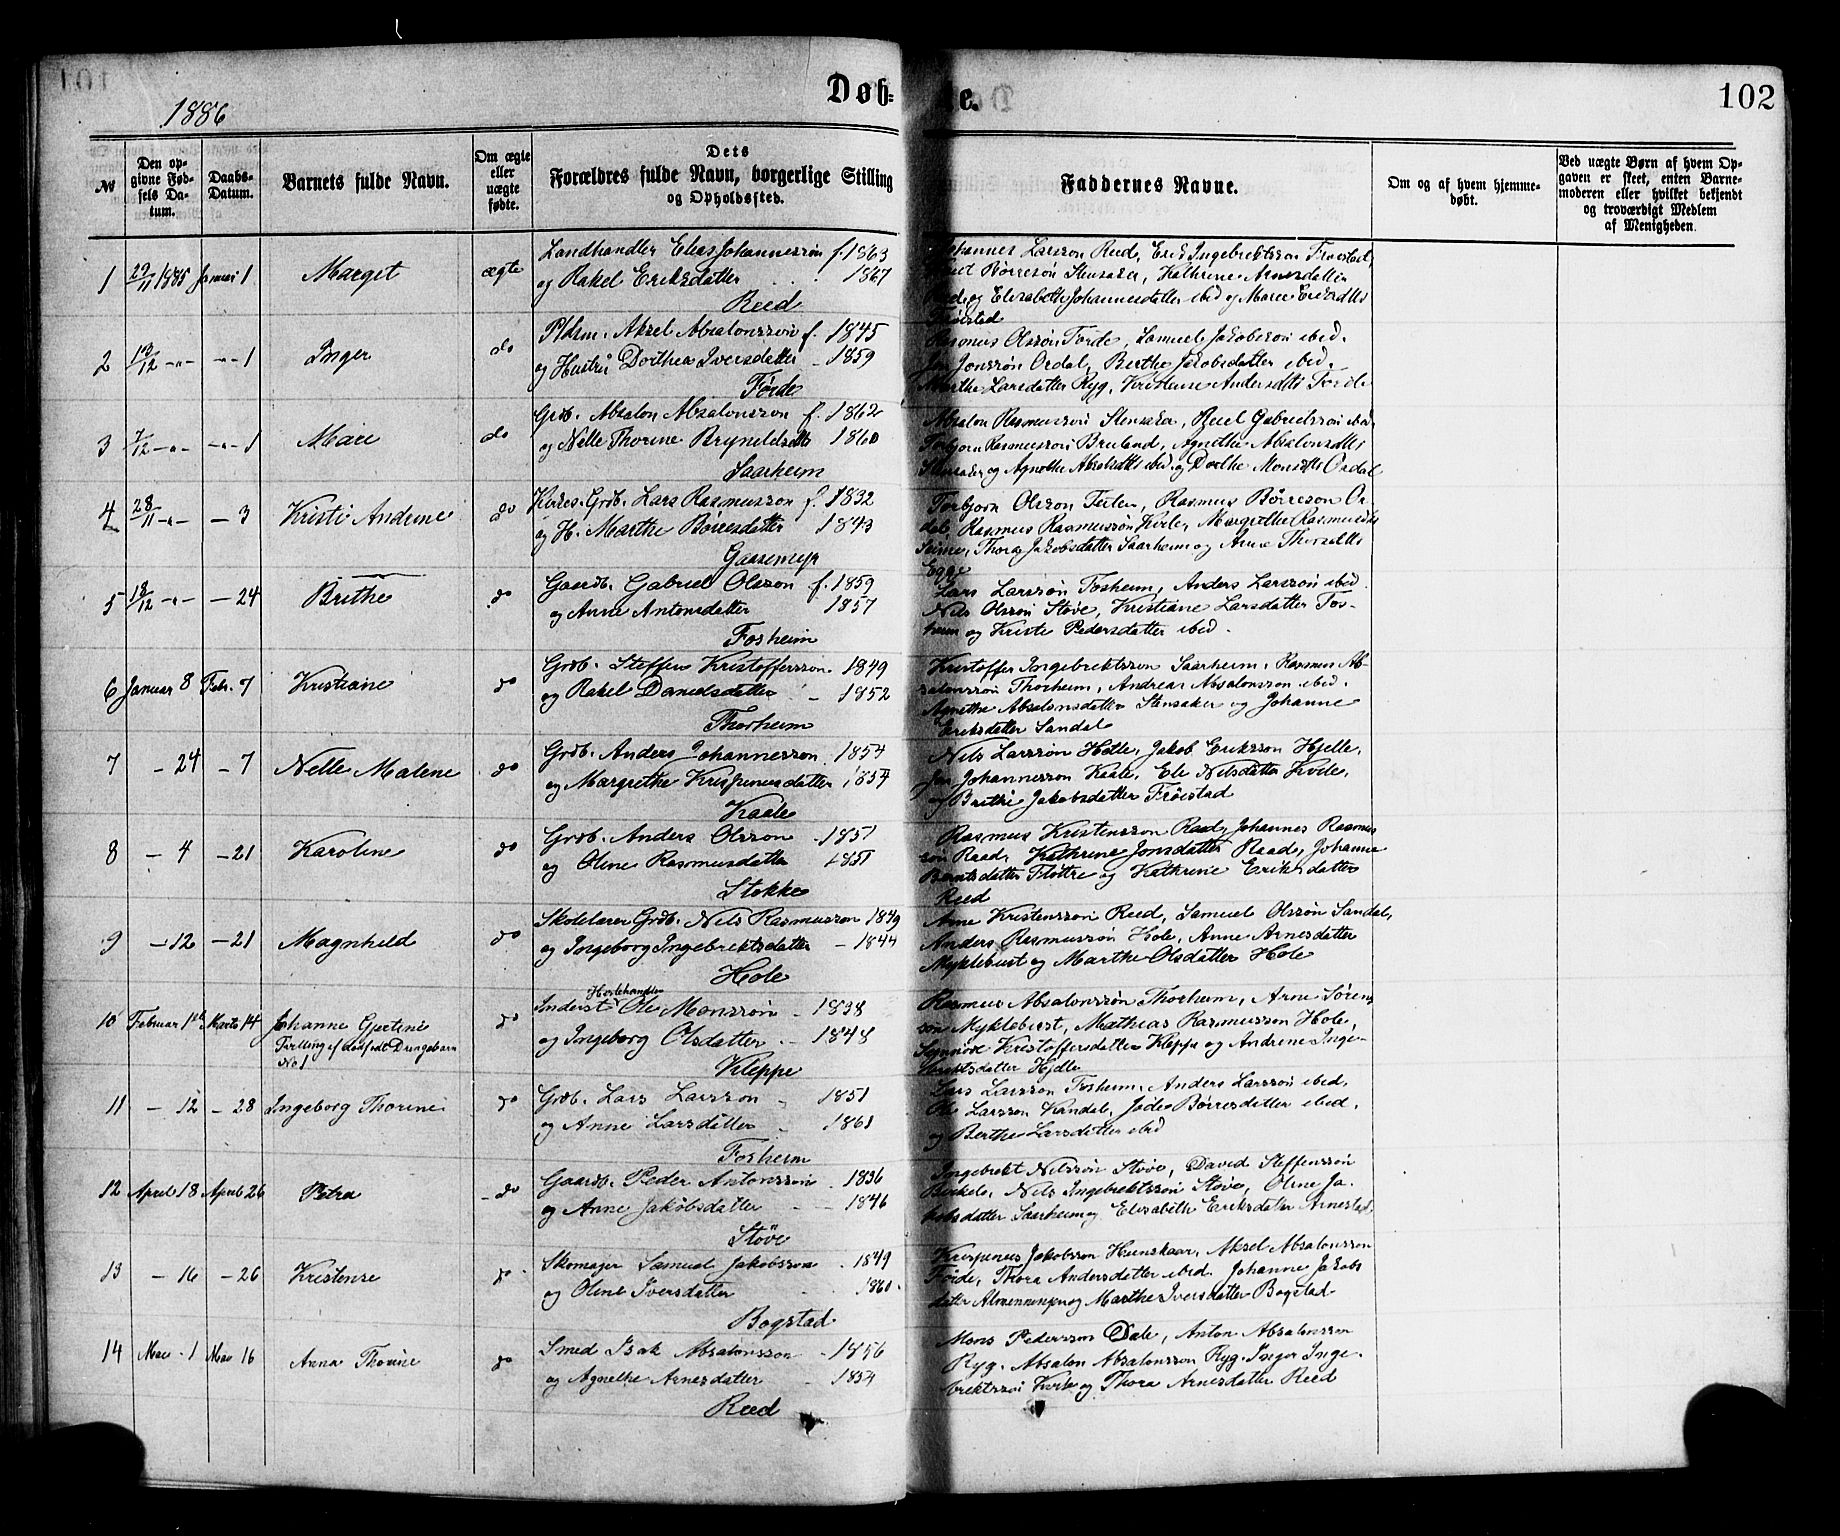 1886
Døb=
te.
102
№
Den opgivne Fødsels Datum.
Daabs-Datum.
Barnets fulde Navn.
Om ægte eller uægte fødte.
Dets
Forældres fulde Navn, borgerlige Stilling
og Opholdssted.
Faddernes Navne.
Om og af hvem hjemmedøbt.
Ved uægte Børn af hvem Opgaven er skeet, enten Barnemoderen eller hvilket bekjendt og troværdigt Medlem af Menigheden.
1 29/11 1885 Januar 1 Marget ægte Landhandler Elias Johannessøn f. 1863
og Rakel Eriksdatter 1867
Reed
Johannes Larsson Reed, Erik Ingebrektsson Frøistad,
Børresøn Stensaker, Kathrine Arnesdatter
Reed og Elisabeth Johannesdatter ibid og Marie
Frøistad
2 13/12 -"- -"- 1 Inger do Pldsm. Aksel Absalonssøn f. 1845
og Hustru Dorthea Iversdatter - 1859
Førde
Rasmus Olssøn Førde, Samuel Jakobsson ibid.
Jonssøn Ordal, Berthe Jakobsdatter ibid.
Marthe Larsdatter Ryg, Andersdtr Førde
3 7/12 -"- -"- 1 Mari do Grdb. Absalon Absalonsson f. 1862
og Nelle Thorine Bryneldsdtr 1860
Saarheim
Absalon Rasmussøn Stensaker, Gabrielssøn ibid.
Torbjørn Rasmussøn Bruland, Agnethe Absalonsdtr
Stensaker og Agnethe ibid og Dorthe Monsdtr Ordal
4 28/11 -"- - 3 Kristi Andrine do Grdb. Lars Rasmusson f. 1832
og H. Marthe Børresdatter 1843
Gaasemyr
Torbjørn Olsson Rasmus Børreson Or-
dal, Rasmus Rasmussøn Kvile, Margrethe Rasmusdtr
Seime, Thora Jakobsdatter Saarheim og Anne Thorsdtr
Egge
5 13/12 -"- - 24 Brithe do Gaardb. Gabriel Olsson f. 1859
og Anne Antonsdatter 1857
Fosheim
Lars Larssøn Fosheim, Anders Larssøn ibid.
Nils Olssøn Støve, Kristiane Larsdatter Fos-
heim og Kristi Pedersdatter ibid.
6 Januar 8 Febr. 7 Kristiane do Grdb. Steffen Kristoffersson - 1849
og Rakel Danielsdatter - 1852
Thorheim
Kristoffer Ingebrektsson Saarheim, Rasmus Ab-
salonssøn Thorheim, Andreas Absalonsson ibid.
Agnethe Absalonsdatter Stensaker og Johanne
Eriksdatter Sandal
7 - 24 - 7 Nelle Malene do Grdb. Anders Johannesson - 1854
og Margrethe Krispinusdatter 1854
Kaale
Nils Larssøn Hjelle, Jakob Eriksson Hjelle,
Johannesson Kaale, Eli Nilsdatter Kvile,
og Brithe Jakobsdatter Frøistad
8 - 4 - 21 Karoline do Grdb. Anders Olsson - 1851
og Oline Rasmusdatter 1851
Stokke
Rasmus Kristensson Raad, Johannes Rasmus
søn Raad, Kathrine Jonsdatter Raade, Johanne
Berntsdatter Fløtre og Kathrine Eriksdatter
Reed
9 - 12 - 21 Magnhild do Skolelærer Grdb. Nils Rasmusson 1849
og Ingeborg Ingebrektsdatter - 1844
Hole
Arne Kristenssøn Reed, Samuel Olssøn Sandal,
Anders Rasmussøn Hole, Anne Arnesdatter
Myklebust og Marthe Olsdatter Hole
10 Februar 1ste Marts 14 Johanne Gjertine
Tvilling af dødfødt Drengebarn
No 1
do Hestehandler
Inderst Ole Monssøn - 1838
og Ingeborg Olsdatter - 1848
Kleppe
Rasmus Absalonssøn Thorheim, Arne Søren-
son Myklebust, Mathias Rasmusson Hole,
Synnøve Kristoffersdatter Kleppe og Andrine Inge-
brektsdatter Hjelle
11 - 12 - 28 Ingeborg Thorine do Grdb. Lars Larsson - 1851
og Anne Larsdatter - 1861
Fosheim
Lars Larsson Fosheim, Anders Larssøn ibid,
Ole Larsson Kandal, Børresdatter ibid,
og Berthe Larsdatter ibid
12 April 18 April 26 Petra do Gaardb. Peder Antonssøn . 1836
og Anne Jakobsdatter - 1846
Støve
Ingebrekt Nilssøn Støve, David Steffenssøn
Birkelo, Nils Ingebrektssøn Støve, Oline Ja-
kobsdatter Saarheim og Elisabeth Eriksdatter Arnestad
13 - 16 - 26 Kristense do Skomager Samuel Jakobsson . 1849
og Oline Iversdatter . 1860
Bogstad
Krispinus Jakobsson Hunskaar, Aksel Absalonsson
Førde, Thora Andersdatter ibid. Johanne Jakobs
datter Almenningen og Marthe Iversdatter Bogstad
14 Mai 1 Mai 16 Anna Thorine do Smed Isak Absalonsson - 1856
og Agnethe Arnesdatter - 1854
Reed
Mons Pedersson Dale, Anton Absalonsson
Ryg. Absalon Absalonsson Ryg. Inger Inge-
brektssøn Kvile og Thora Arnesdatter Reed